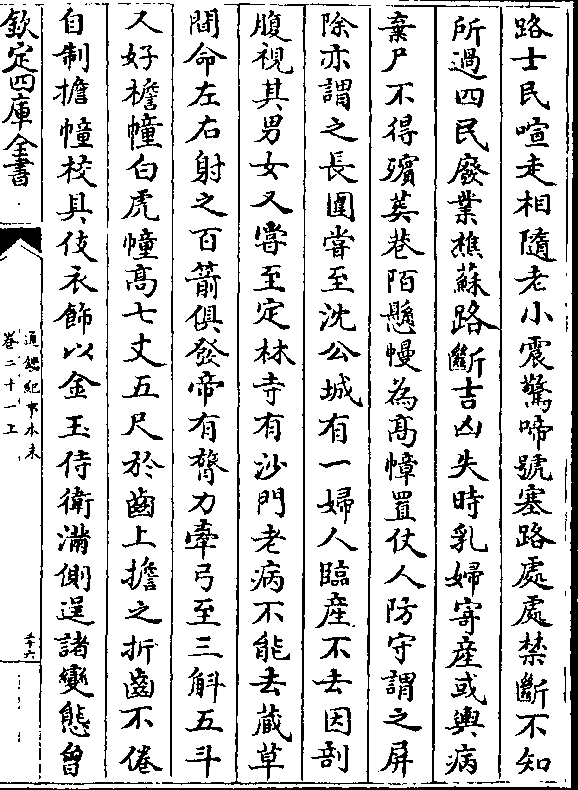 路士民喧走相隨老小震驚啼號塞路處處禁斷不知
所過四民廢業樵蘇路斷吉凶失時乳婦寄產或輿病
棄尸不得殯葬巷陌懸幔為高幛置仗人防守謂之屏
除亦謂之長圍嘗至沈公城有一婦人臨產不去因剖
腹視其男女又嘗至定林寺有沙門老病不能去藏草
間命左右射之百箭俱發帝有膂力牽弓至三斛五斗
又好檐幢白虎幢高七丈五尺於齒上擔之折齒不倦
自制擔幢校具伎衣飾以金玉侍衛滿側逞諸變態曾
欽定四庫全書
通鑑紀事本末
卷二十一上